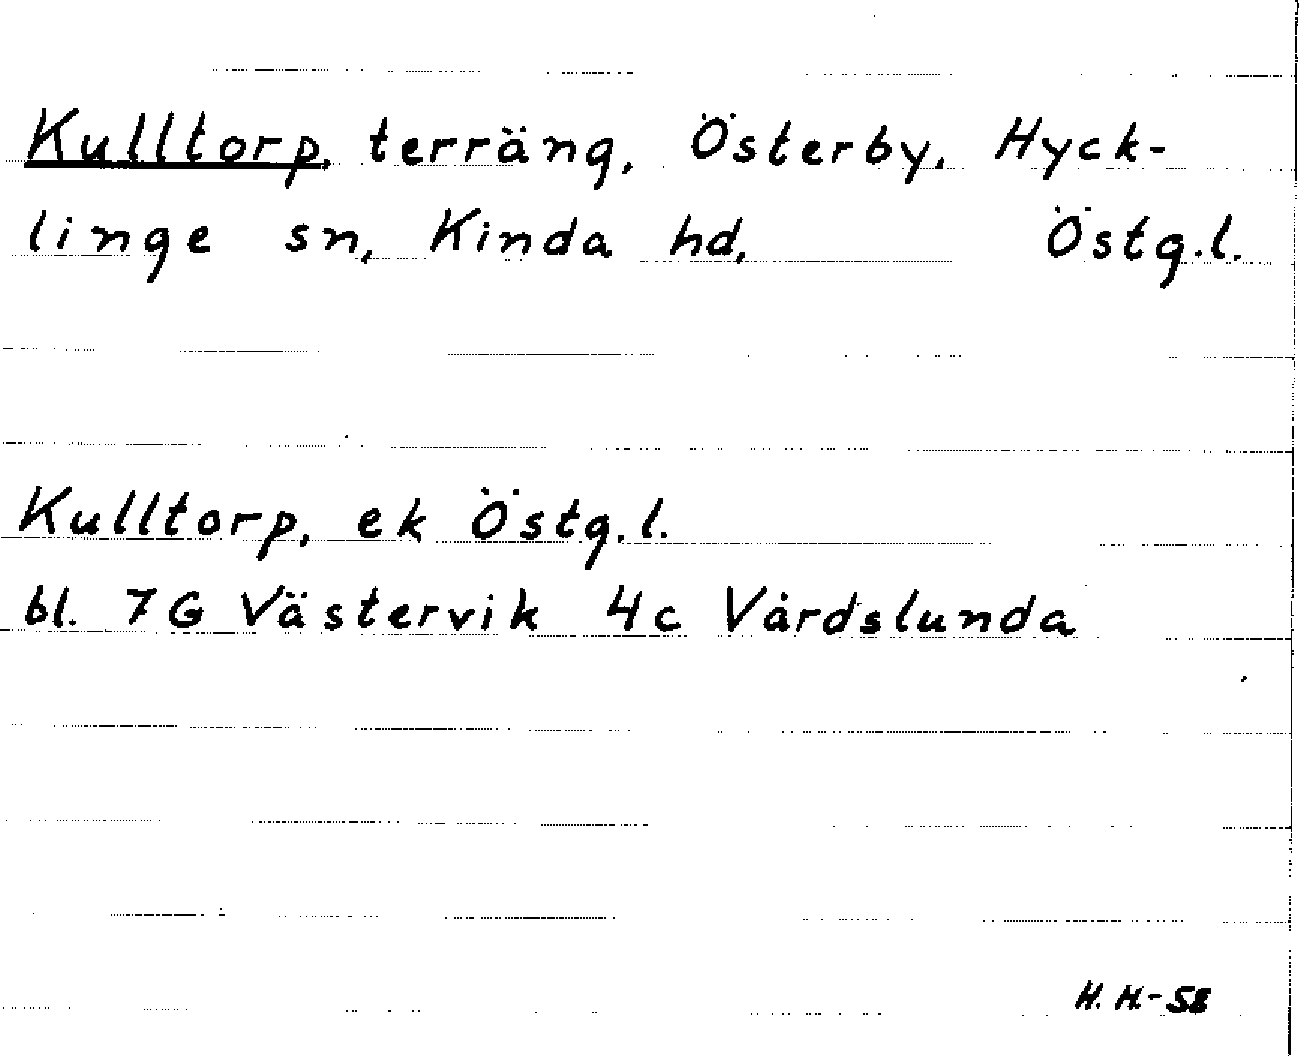 Kulltorp, terräng, Österby, Hyck-
linge sn, Kinda hd, Östg.l.
Kulltorp, ek Östg.l.
bl. 7G Västervik 4c Vårdslunda
H.H-58